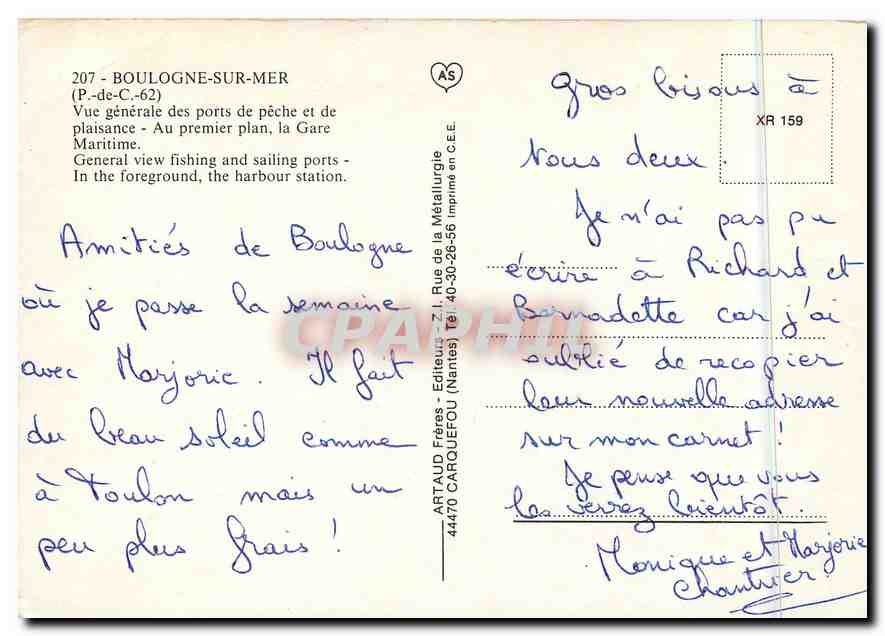 207 - BOULOGNE-SUR-MER
(P.-de-C.-62)
Vue générale des ports de pêche et de
plaisance - Au premier plan, la Gare
Maritime.
General view fishing and sailing ports -
In the foreground, the harbour station.
Amitiés de Boulogne
où je passe la semaine
avec Marjorie. Il fait
du beau soleil comme
à Toulon mais un
peu plus frais !
AS
ARTAUD Frères - Editeurs - Z.I. Rue de la Métallurgie
44470 CARQUEFOU (Nantes) Tél. 40-30-26-56 Imprimé en C.E.E.
XR 159
Gros bisous à
vous deux.
Je n'ai pas pu
écrire à Richard et
Bernadette car j'ai
oublié de recopier
leur nouvelle adresse
sur mon carnet !
Je pense que vous
les verrez bientôt.
Monique et Marjorie
Chantrier.
CPAPHIL